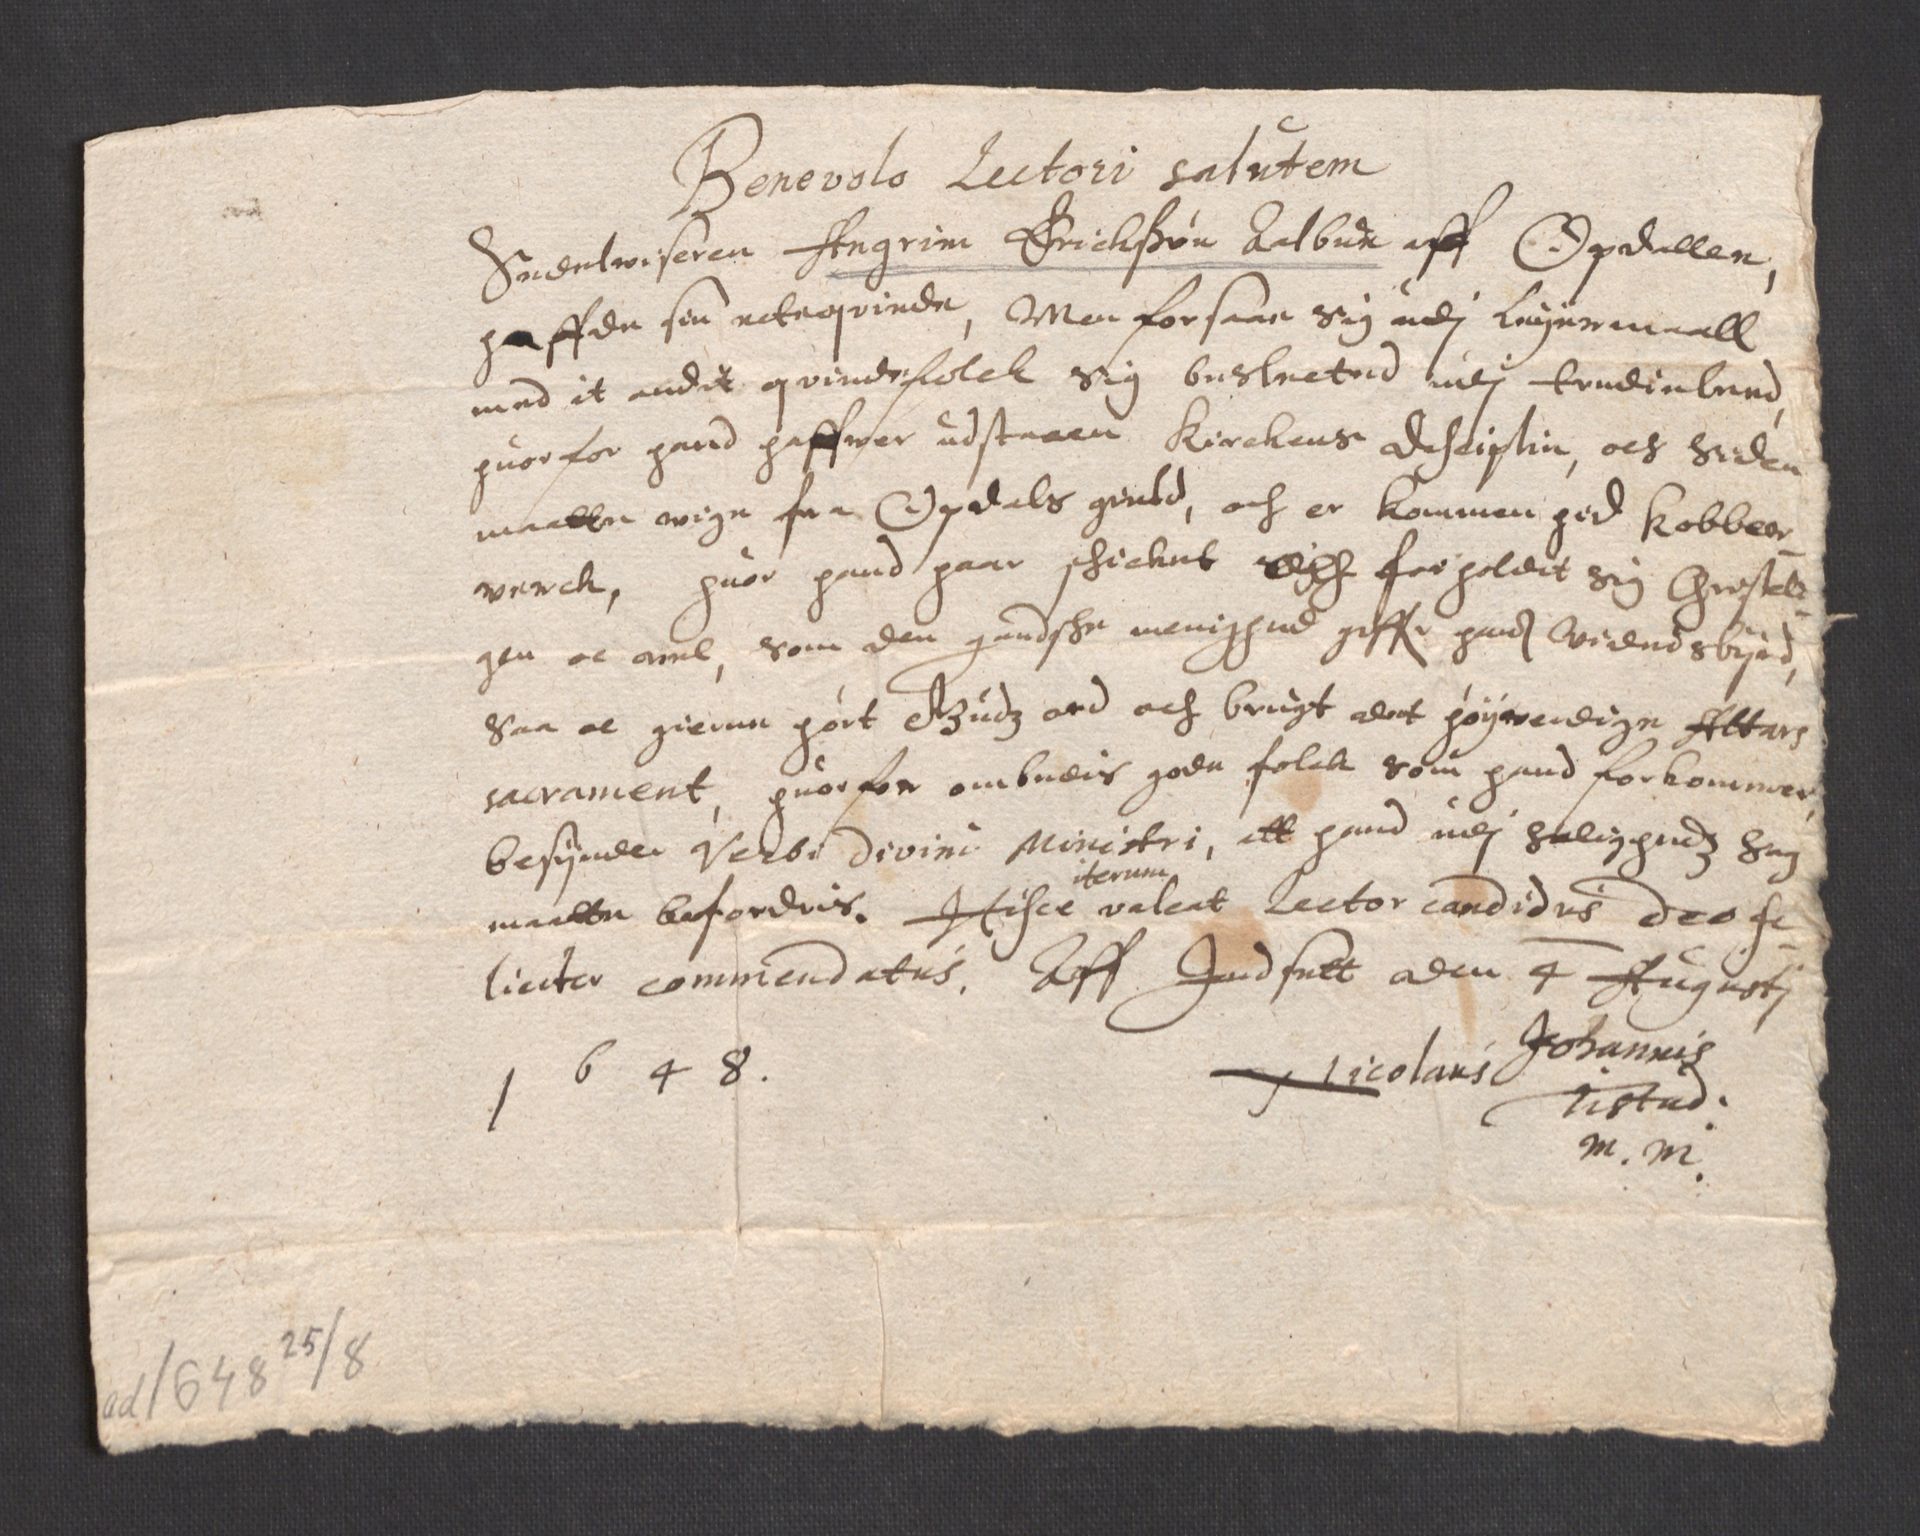 Benevolo Lectori salutem
Seddelwiseren Angrim Erichsøn Aalbue aff Opdallen,
haffde sin ectequinde, Men forsaae sig udj leyermaall
med it andit quindefolck sig beslected udj tredieleed,
huorfor hand haffuer udstaaen Kirckens dissciplin, och siden
maatte wige fra Opdals gield, och er kommen hid Kobber-
verck, huor hand haar schicket och forholdit sig Christeli-
gen oc vel, som den gandsche menighed giffr hand vidnesbyrd,
saa oc gierne hørt Gudz ord och brugt det höyverdige Altars
sacrament, huorfor ombedis gode folck som hand forkommer,
besynder Verbi divini Ministri, att hand udj salighedz sag
maatte befordris. Hisce iterum valeat Lector candidus deo fe-
liciter commendatus. Aff Indsett den 4 Augustj
1648.
Nicolaus Johannis
Tistad.
m. m.
ad 1648 25/8